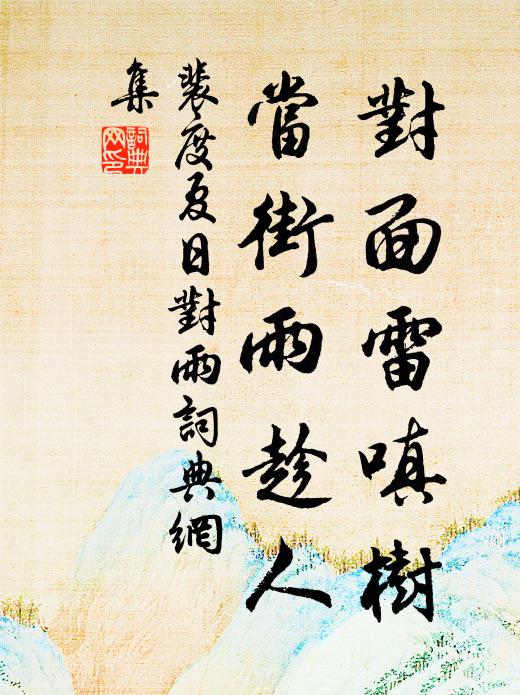 對面雷嗔樹
當街雨趁人
裴度夏日對雨詞典網
集
詞典
网印